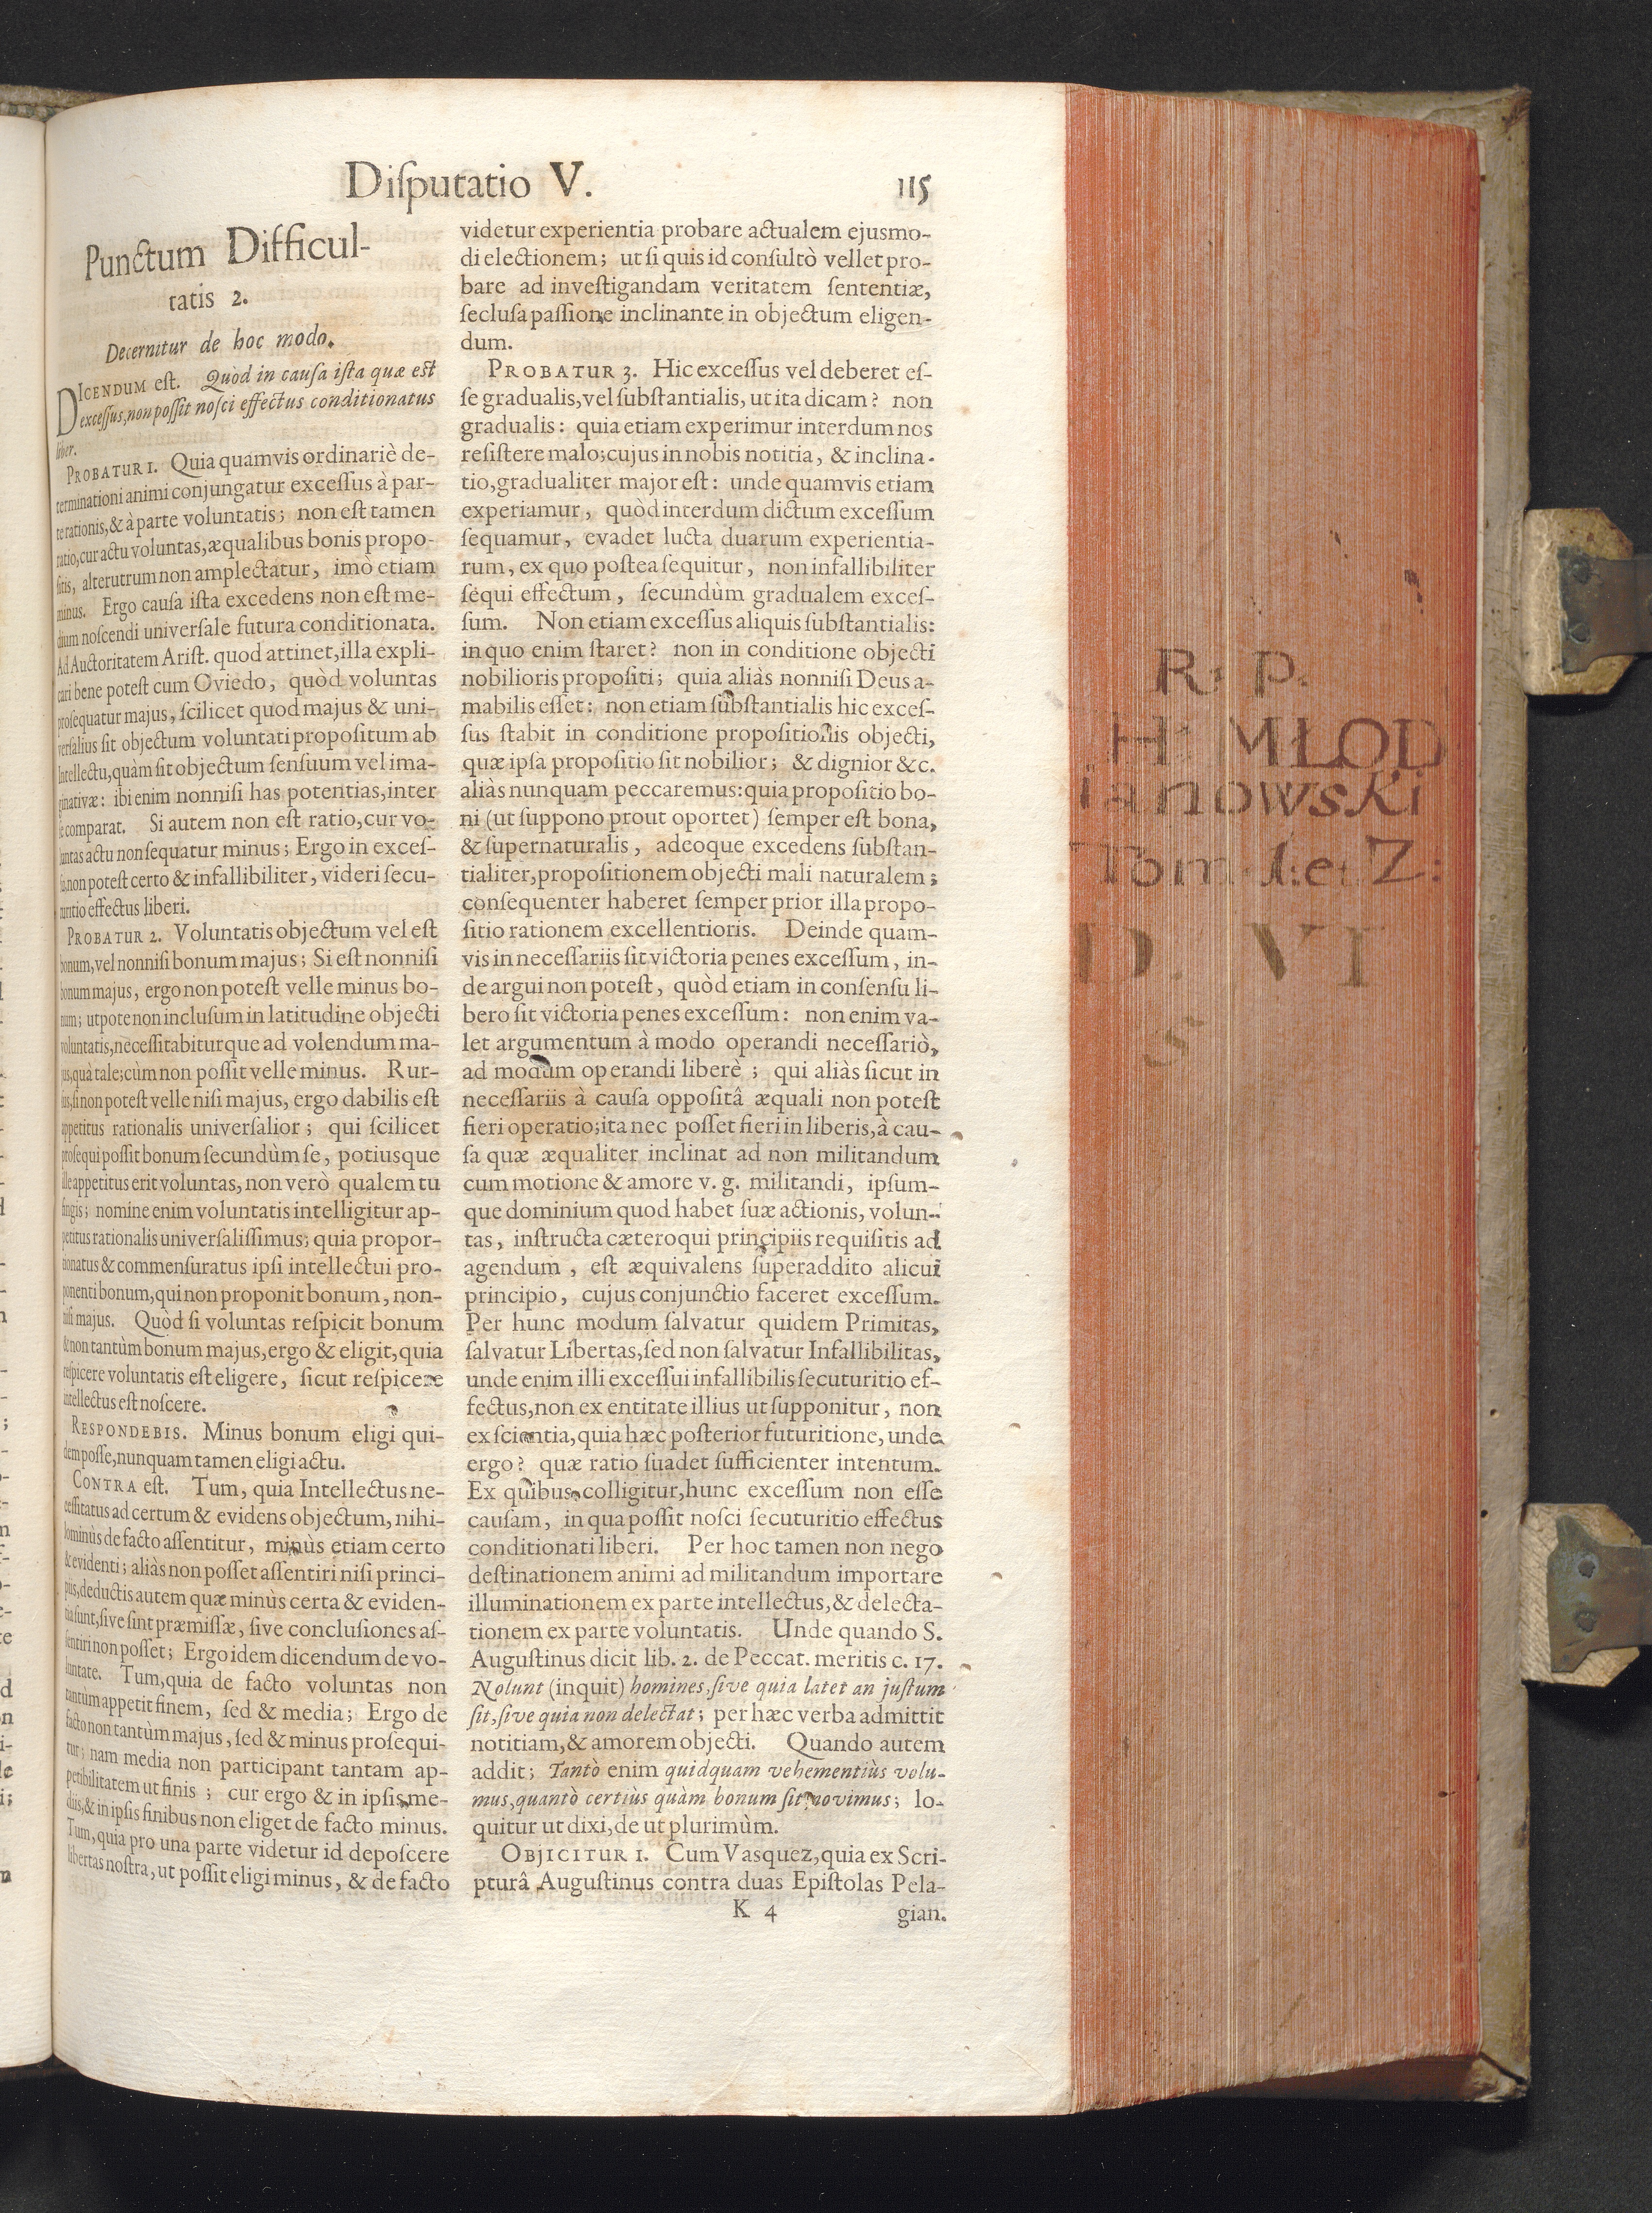 Disputatio V. 115
Punctum Difficul-
tatis 2.
Decernitur de hoc modo.
DICENDUM est. Quòd in causa ista quæ est
excessus, non possit nosci effectus conditionatus
liber.
PROBATUR 1. Quia quamvis ordinariè de-
terminationi animi conjungatur excessus à par-
te rationis, & à parte voluntatis; non est tamen
ratio, cur actu voluntas, æqualibus bonis propo-
sitis, alterutrum non amplectatur, imò etiam
minus. Ergo causa ista excedens non est me-
dium noscendi universale futura conditionata.
Ad Auctoritatem Arist. quod attinet, illa expli-
cari bene potest cum Oviedo, quòd voluntas
prosequatur majus, scilicet quod majus & uni-
versalius sit objectum voluntati propositum ab
Intellectu, quàm sit objectum sensuum vel ima-
ginativæ: ibi enim nonnisi has potentias, inter
se comparat. Si autem non est ratio, cur vo-
luntas actu non sequatur minus; Ergo in exces-
su, non potest certo & infallibiliter, videri secu-
turitio effectus liberi.
PROBATUR 2. Voluntatis objectum vel est
bonum, vel nonnisi bonum majus; Si est nonnisi
bonum majus, ergo non potest velle minus bo-
num; utpote non inclusum in latitudine objecti
voluntatis, necessitabiturque ad volendum ma-
jus, quà tale; cùm non possit velle minus. Rur-
sus, si non potest velle nisi majus, ergo dabilis est
appetitus rationalis universalior; qui scilicet
prosequi possit bonum secundùm se, potiusque
ille appetitus erit voluntas, non verò qualem tu
fingis; nomine enim voluntatis intelligitur ap-
petitus rationalis universalissimus; quia propor-
tionatus & commensuratus ipsi intellectui pro-
ponenti bonum, qui non proponit bonum, non-
nisi majus. Quòd si voluntas respicit bonum
& non tantùm bonum majus, ergo & eligit, quia
respicere voluntatis est eligere, sicut respicere
intellectus est noscere.
RESPONDEBIS. Minus bonum eligi qui-
dem posse, nunquam tamen eligi actu.
CONTRA est. Tum, quia Intellectus ne-
cessitatus ad certum & evidens objectum, nihi-
lominùs de facto assentitur, minùs etiam certo
& evidenti; aliàs non posset assentiri nisi princi-
piis, deductis autem quæ minùs certa & eviden-
tia sunt, sive sint præmissæ, sive conclusiones as-
sentiri non posset; Ergo idem dicendum de vo-
luntate. Tum, quia de facto voluntas non
tantùm appetit finem, sed & media; Ergo de
facto non tantùm majus, sed & minus prosequi-
tur; nam media non participant tantam ap-
petibilitatem ut finis; cur ergo & in ipsis me-
diis, & in ipsis finibus non eliget de facto minus.
Tum, quia pro una parte videtur id deposcere
libertas nostra, ut possit eligi minus, & de facto
videtur experientia probare actualem ejusmo-
di electionem; ut si quis id consultò vellet pro-
bare ad investigandam veritatem sententiæ,
seclusa passione inclinante in objectum eligen-
dum.
PROBATUR 3. Hic excessus vel deberet es-
se gradualis, vel substantialis, ut ita dicam? non
gradualis: quia etiam experimur interdum nos
resistere malo; cujus in nobis notitia, & inclina-
tio, gradualiter major est: unde quamvis etiam
experiamur, quòd interdum dictum excessum
sequamur, evadet lucta duarum experientia-
rum, ex quo postea sequitur, non infallibiliter
sequi effectum, secundùm gradualem exces-
sum. Non etiam excessus aliquis substantialis:
in quo enim staret? non in conditione objecti
nobilioris propositi; quia aliàs nonnisi Deus a-
mabilis esset: non etiam substantialis hic exces-
sus stabit in conditione propositionis objecti,
quæ ipsa propositio sit nobilior; & dignior &c.
aliàs nunquam peccaremus: quia propositio bo-
ni (ut suppono prout oportet) semper est bona,
& supernaturalis, adeoque excedens substan-
tialiter, propositionem objecti mali naturalem;
consequenter haberet semper prior illa propo-
sitio rationem excellentioris. Deinde quam-
vis in necessariis sit victoria penes excessum, in-
de argui non potest, quòd etiam in consensu li-
bero sit victoria penes excessum: non enim va-
let argumentum à modo operandi necessariò,
ad modum operandi liberè; qui aliàs sicut in
necessariis à causa oppositâ æquali non potest
fieri operatio; ita nec posset fieri in liberis, à cau-
sa quæ æqualiter inclinat ad non militandum
cum motione & amore v. g. militandi, ipsum-
que dominium quod habet suæ actionis, volun-
tas, instructa cæteroqui principiis requisitis ad
agendum, est æquivalens superaddito alicui
principio, cujus conjunctio faceret excessum.
Per hunc modum salvatur quidem Primitas,
salvatur Libertas, sed non salvatur Infallibilitas,
unde enim illi excessui infallibilis secuturitio ef-
fectus, non ex entitate illius ut supponitur, non
ex scientia, quia hæc posterior futuritione, unde
ergo? quæ ratio suadet sufficienter intentum.
Ex quibus colligitur, hunc excessum non esse
causam, in qua possit nosci secuturitio effectus
conditionati liberi. Per hoc tamen non nego
destinationem animi ad militandum importare
illuminationem ex parte intellectus, & delecta-
tionem ex parte voluntatis. Unde quando S.
Augustinus dicit lib. 2. de Peccat. meritis c. 17.
Nolunt (inquit) homines, sive quia latet an justum
sit, sive quia non delectat; per hæc verba admittit
notitiam, & amorem objecti. Quando autem
addit; Tantò enim quidquam vehementiùs volu-
mus, quantò certiùs quàm bonum sit novimus; lo-
quitur ut dixi, de ut plurimùm.
OBJICITUR 1. Cum Vasquez, quia ex Scri-
pturâ Augustinus contra duas Epistolas Pela-
K 4 gian.
R: P.
H: MŁOD
ianowski
Tom 1: e: Z:
D. VI
S